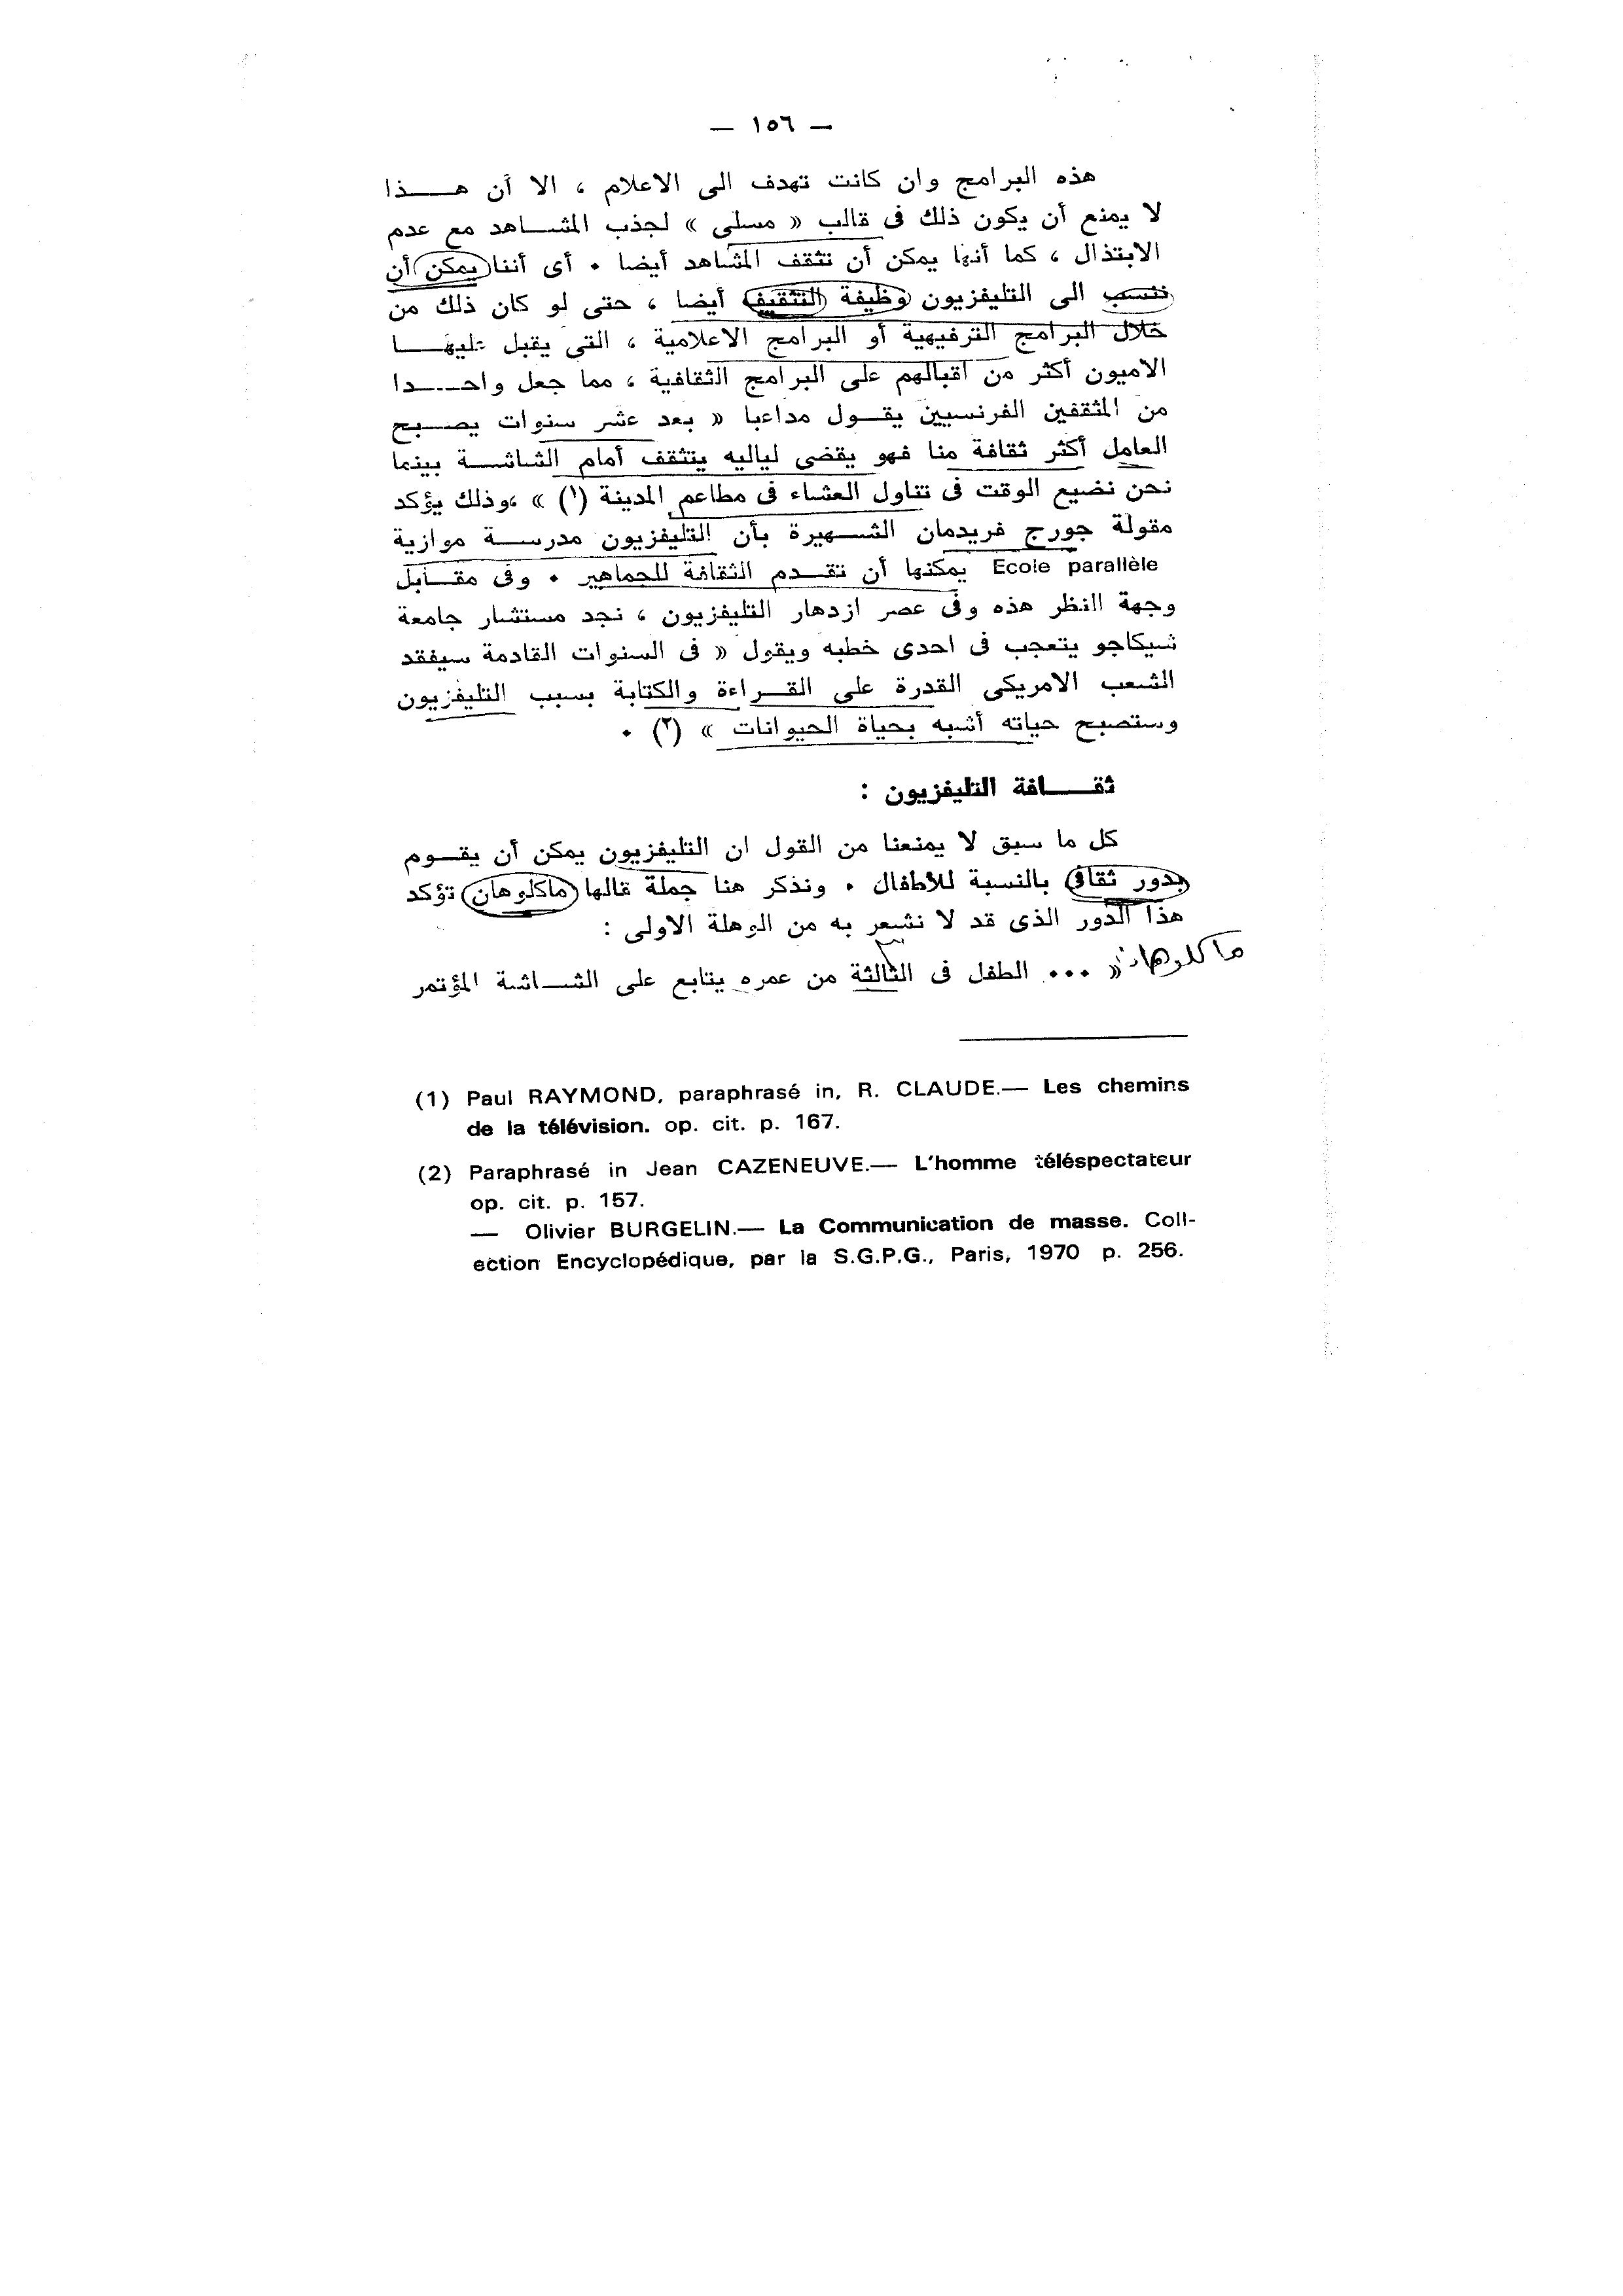 — ١٥٦ —
هذه البرامج وان كانت تهدف الى الاعلام ، الا أن هـــذا
لا يمنع أن يكون ذلك فى قالب « مسلى » لجذب المشـاهد مع عدم
الابتذال ، كما أنها يمكن أن تثقف المشاهد أيضا ٠ أى أننا يمكن أن
ننسب الى التليفزيون وظيفة التثقيف أيضا ، حتى لو كان ذلك من
خلال البرامج الترفيهية أو البرامج الاعلامية ، التى يقبل عليهـــا
الاميون أكثر من اقبالهم على البرامج الثقافية ، مما جعل واحــدا
من المثقفين الفرنسيين يقـول مداعبا « بعد عشر سنوات يصـبح
العامل أكثر ثقافة منا فهو يقضى لياليه يتثقف أمام الشاشـة بينما
نحن نضيع الوقت فى تناول العشاء فى مطاعم المدينة (١) » ،وذلك يؤكد
مقولة جورج فريدمان الشـهيرة بأن التليفزيون مدرسـة موازية
Ecole parallèle يمكنها أن تقـدم الثقافة للجماهير ٠ وفى مقـابل
وجهة النظر هذه وفى عصر ازدهار التليفزيون ، نجد مستشار جامعة
شيكاجو يتعجب فى احدى خطبه ويقول « فى السنوات القادمة سيفقد
الشعب الامريكى القدرة على القـراءة والكتابة بسبب التليفزيون
وستصبح حياته أشبه بحياة الحيوانات » (٢) ٠
ثقـــافة التليفزيون :
كل ما سبق لا يمنعنا من القول ان التليفزيون يمكن أن يقـوم
بدور ثقافى بالنسبة للأطفال ٠ ونذكر هنا جملة قالها ماكلوهان تؤكد
هذا الدور الذى قد لا نشعر به من الوهلة الاولى :
ماكلوهان
« ٠٠٠ الطفل فى الثالثة من عمره يتابع على الشـاشة المؤتمر
(1) Paul RAYMOND, paraphrasé in, R. CLAUDE.— Les chemins
de la télévision. op. cit. p. 167.
(2) Paraphrasé in Jean CAZENEUVE.— L'homme téléspectateur
op. cit. p. 157.
— Olivier BURGELIN.— La Communication de masse. Coll-
ection Encyclopédique, par la S.G.P.G., Paris, 1970 p. 256.